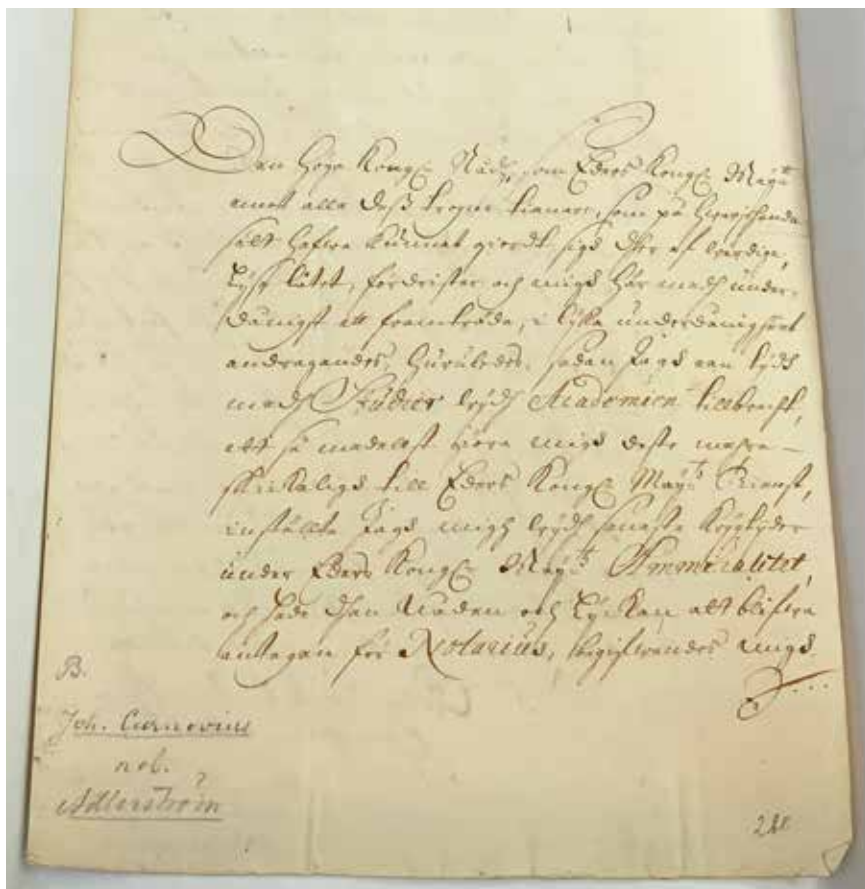 Den Höga Kongl. Nåd, som Eders Kongl. Mayt
emot alla deß trogne tienare, som på
sätt hafwa kunnat giordt sigh der af werdige,
lyse låtet, fördristar och migh här medh under-
dånigst att framträda, i lijka underdånigheet
andragandes, huruledes, sedan Jagh een tijdh
medh Studier wijdh Academien tillbracht,
att så medelst giöra migh deste mehra
skickeligh till Eders Kongl. Mayts Tienst,
instälte Jagh migh wijdh senaste Krijgztijder
under Eders Kongl. Mayts Ammiralitet,
och hade dhen Nåden och Lyckan att blifwa
antagen för Notarius, begifwandes migh
B.
Joh. Carnovius
nob.
Adlerström
?